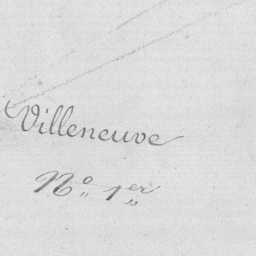 Villeneuve
N° 1er